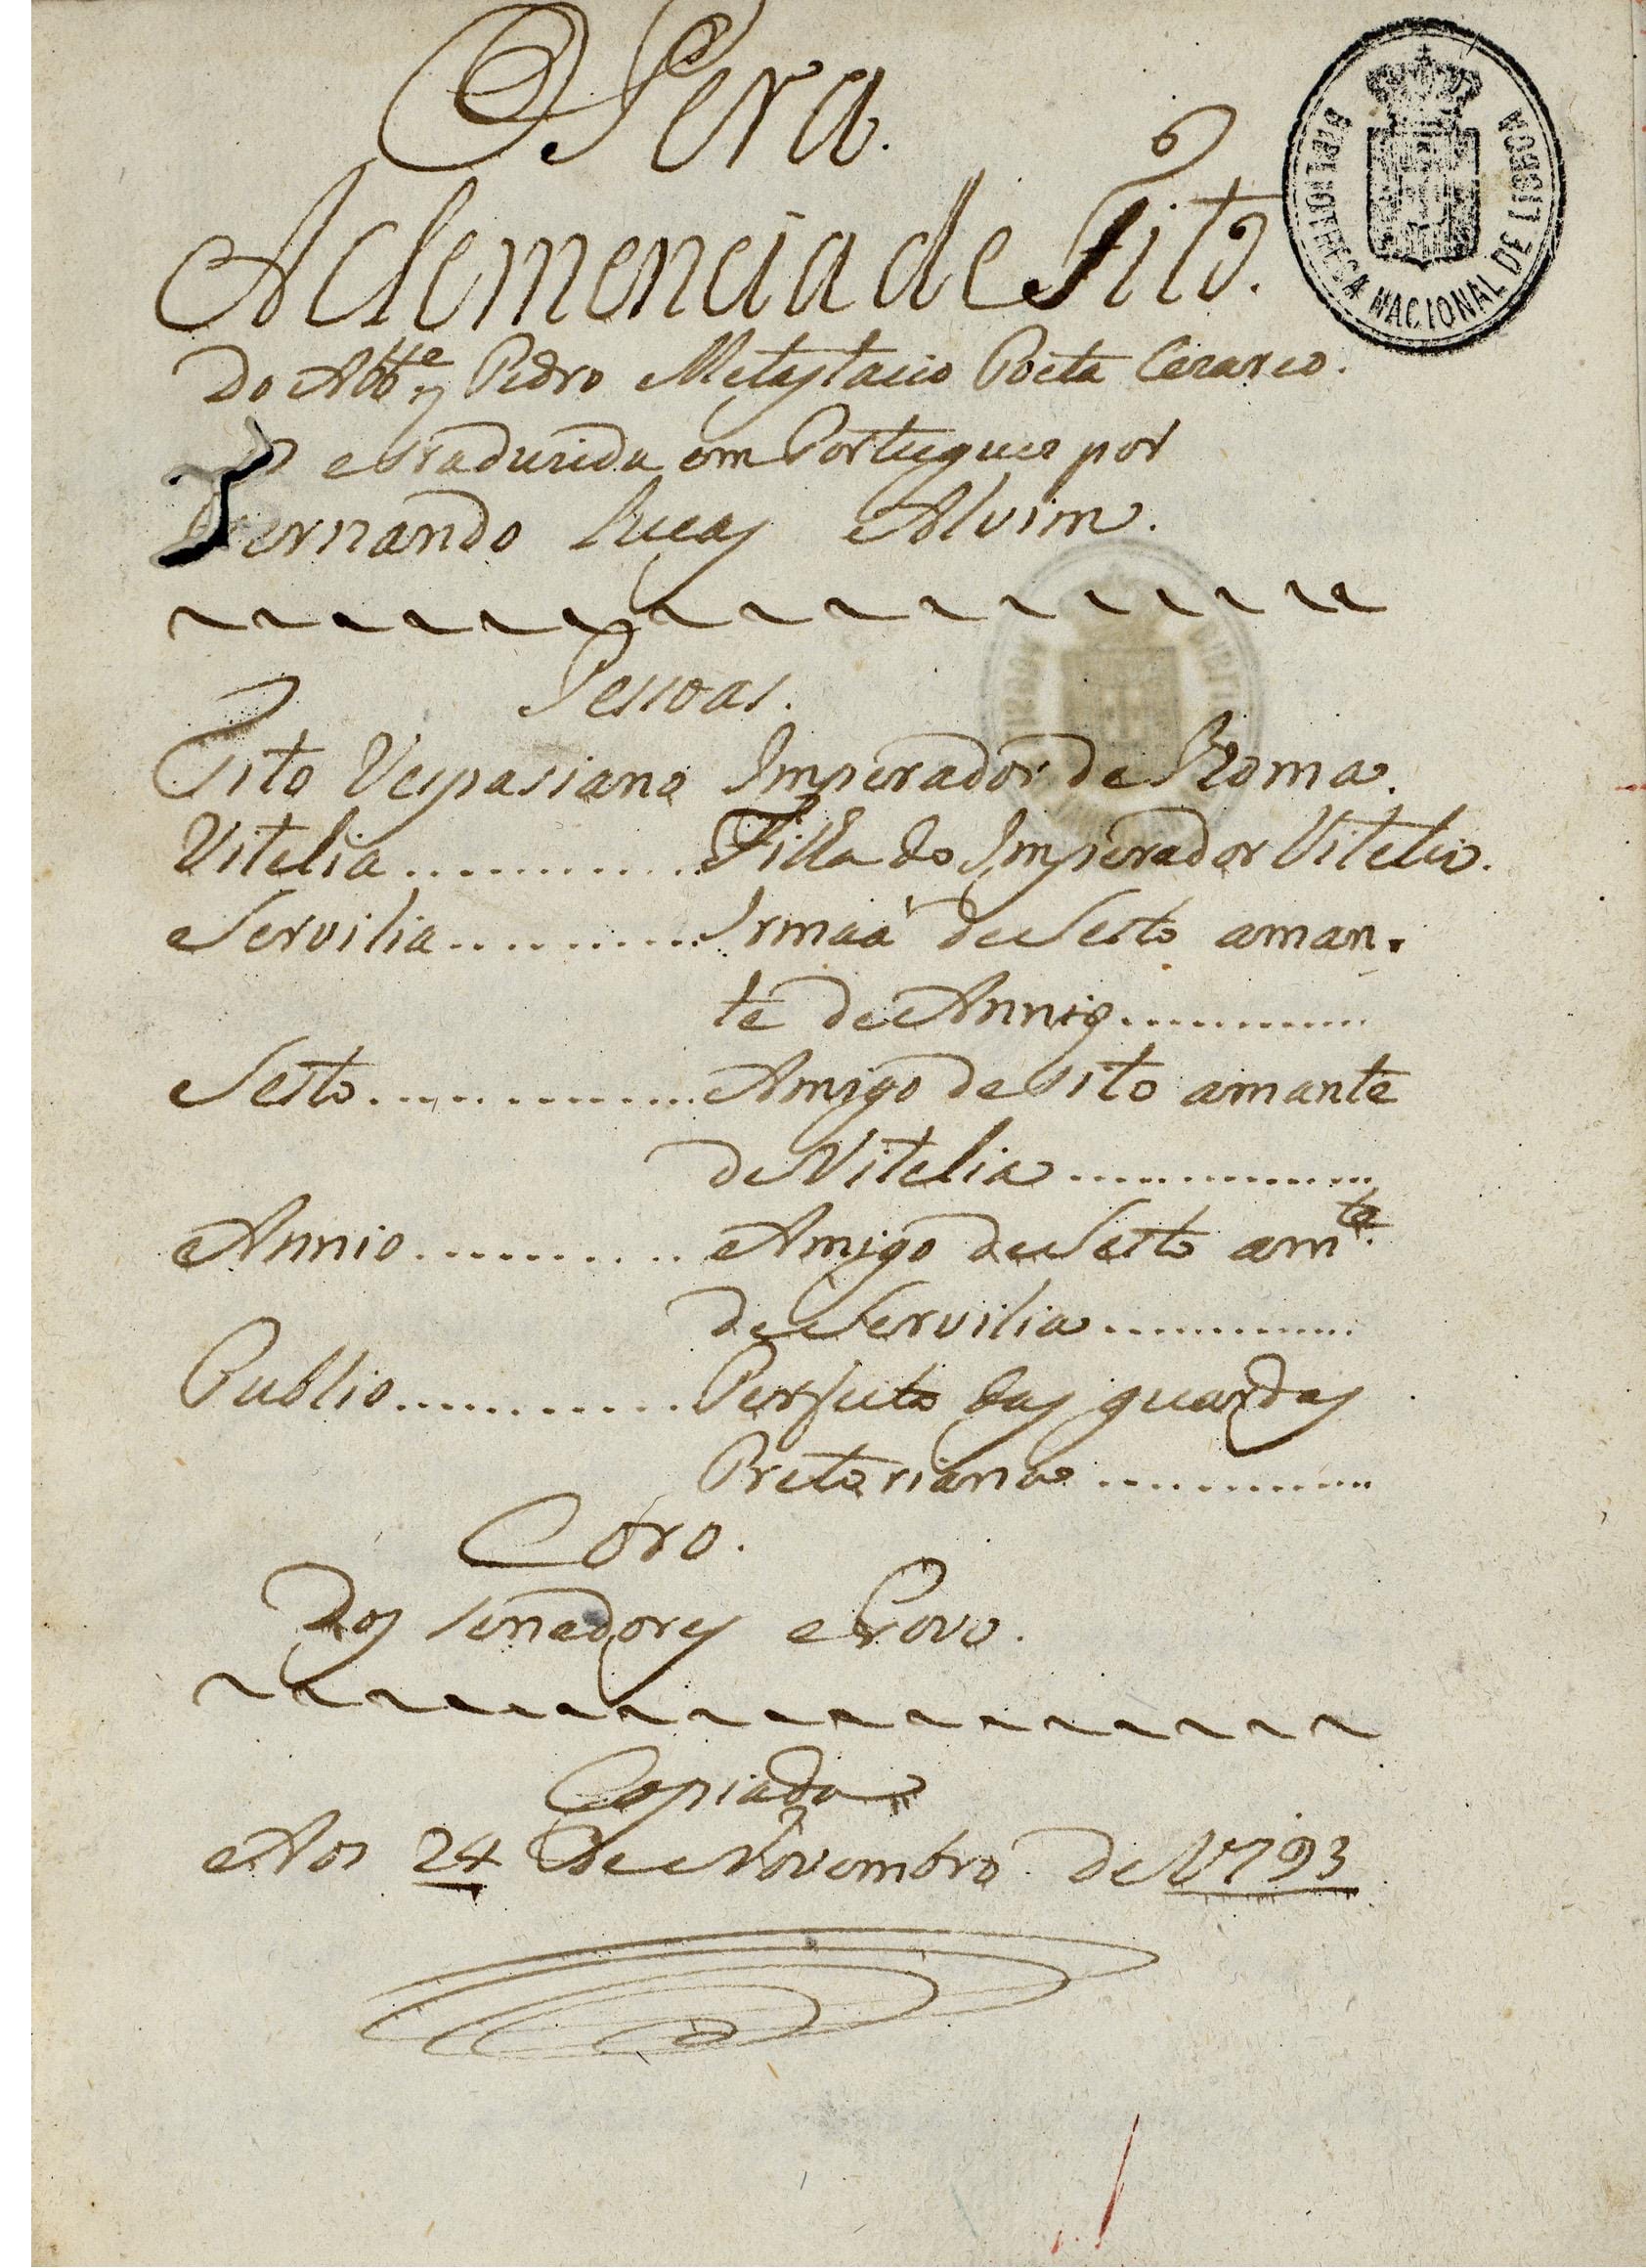 Opera.
A Clemencia de Tito.
BIBLIOTHECA NACIONAL DE LISBOA
Do Abb.e Pedro Metastacio Poeta Cezareo.
e Tradusida em Portuguez por
Fernando Lucas Alvim.
Pessoas.
Tito Vespasiano Imperador de Roma.
Vitelia ............ Filha do Imperador Vitelio.
Servilia .......... Irmaã de Sesto aman-
te de Annio ............
Sesto .............. Amigo de Tito amante
de Vitelia ...............
Annio ........... Amigo de Sesto am.te
de Servilia ............
Publio ............ Perfeito das guardas
Pretoriana .............
Coro.
Dos Senadores e Povo.
Copiada
Aos 24 de Novembro de 1793